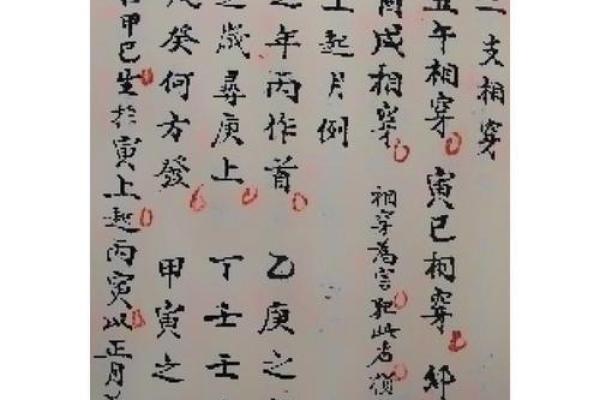 二支相穿
丑午相穿 寅巳相穿 卯
酉戌相穿 相穿為害犯此者損
上起月例
之年丙作首 乙庚之
之歲尋庚上 丁壬壬
戊癸何方發 甲寅之
甲己生於寅上起丙寅以正月